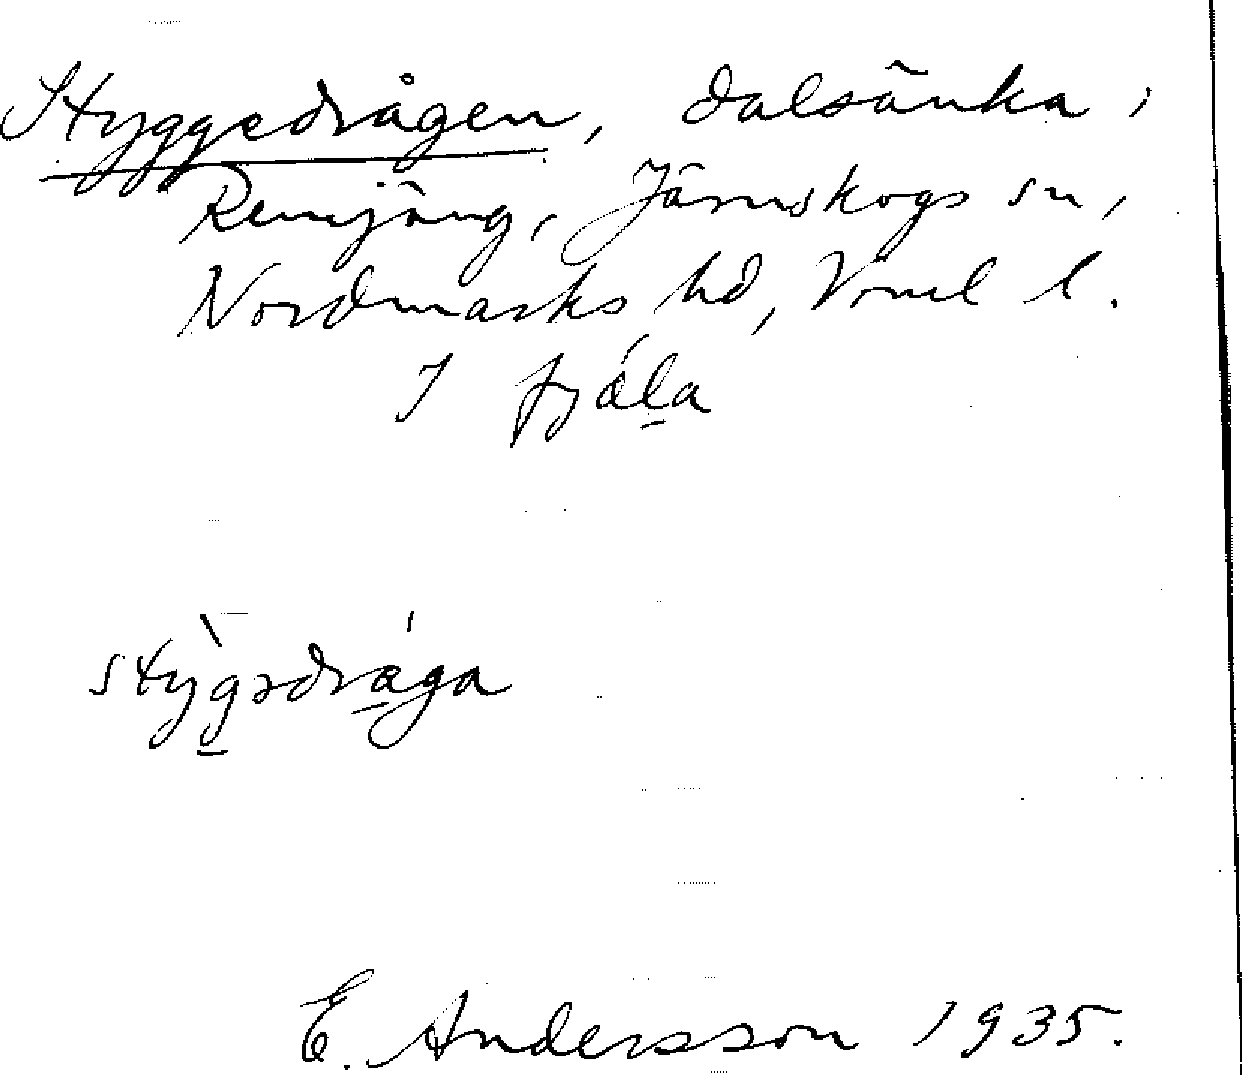 Styggedrågen, dalsänka i
Remjäng, Järnskogs sn,
Nordmarks hd, Vrml l.
I fjåla
stỳgədråga
E. Andersson 1935.